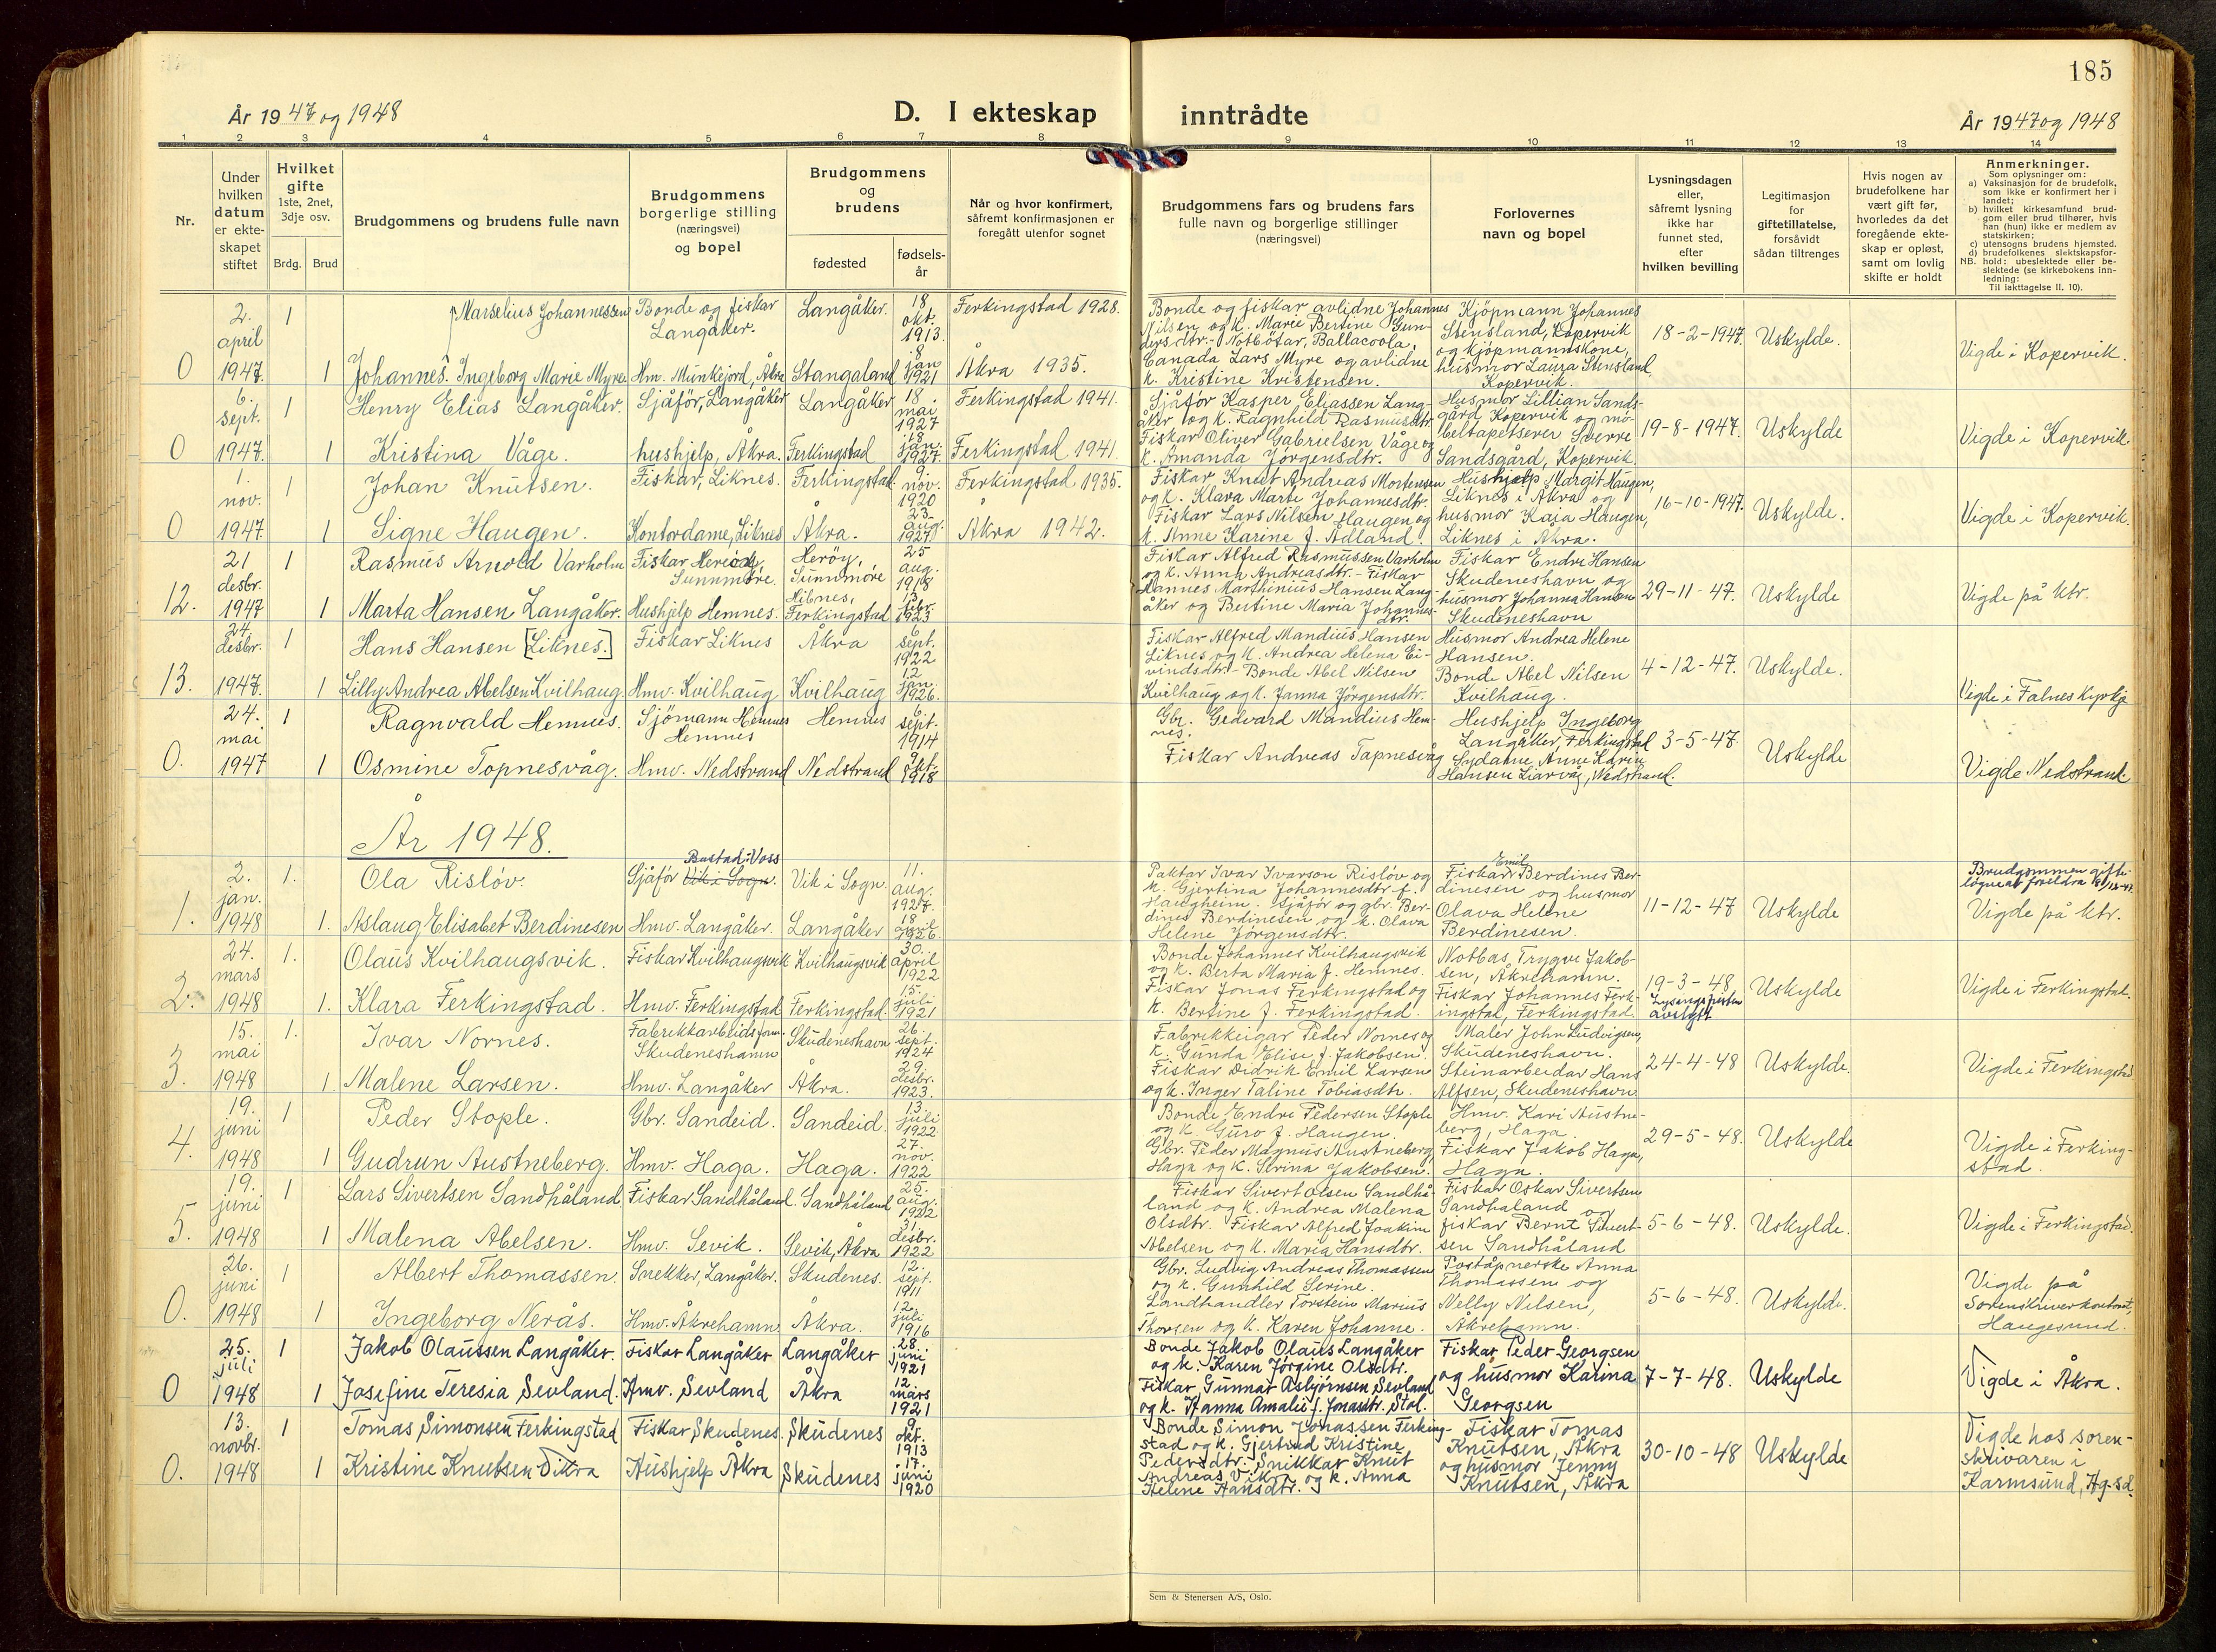 185
År 1947 og 1948
D. I ekteskap inntrådte
År 1947 og 1948
1 2 3 4 5 6 7 8 9 10 11 12 13 14
Nr.
Under
hvilken
datum
er ekte-
skapet
stiftet
Hvilket
gifte
1ste, 2net,
3dje osv.
Brdg. Brud
Brudgommens og brudens fulle navn
Brudgommens
borgerlige stilling
(næringsvei)
og bopel
Brudgommens
og
brudens
fødested
fødsels-
år
Når og hvor konfirmert,
såfremt konfirmasjonen er
foregått utenfor sognet
Brudgommens fars og brudens fars
fulle navn og borgerlige stillinger
(næringsvei)
Forlovernes
navn og bopel
Lysningsdagen
eller,
såfremt lysning
ikke har
funnet sted,
efter
hvilken bevilling
Legitimasjon
for
giftetillatelse,
forsåvidt
sådan tiltrenges
Hvis nogen av
brudefolkene har
vært gift før,
hvorledes da det
foregående ekte-
skap er opløst,
samt om lovlig
skifte er holdt
Anmerkninger.
Som oplysninger om:
a) Vaksinasjon for de brudefolk,
som ikke er konfirmert her i
landet;
b) hvilket kirkesamfund brud-
gom eller brud tilhører, hvis
han (hun) ikke er medlem av
statskirken;
c) utensogns brudens hjemsted.
d) brudefolkenes slektskapsfor-
NB. hold: ubeslektede eller be-
slektede (se kirkebokens inn-
ledning:
Til iakttagelse II. 10).
0
2.
april
1947.
1
Marselius Johannessen
Bonde og fiskar
Langåker.
Langåker.
18
okt.
1913.
Ferkingstad 1928.
1
Johannes. Ingeborg Marie Myre
Hm. Munkejord, Åkra
Stangaland
8
jan
1921
Åkra 1935.
Bonde og fiskar avlidne Johannes
Nilsen og k. Marie Bertine Gun-
ders.dtr. - Notbötar, Ballacoola,
Canada Lars Myre og avlidne
k. Kristine Kristensen.
Kjöpmann Johannes
Stensland, Kopervik
og kjöpmannskone,
husmor Laura Stensland,
Kopervik.
18-2-1947.
Uskylde.
Vigde i Kopervik.
0
6.
sept.
1947.
1
Henry Elias Langåker.
Sjåför, Langåker
Langåker
18
mai
1927
Ferkingstad 1941.
1
Kristina Våge.
hushjelp, Åkra.
Ferkingstad
18
jan.
1927.
Ferkingstad 1941.
Sjåför Kasper Eliassen Lang-
åker og k. Ragnhild Rasmusdtr.
Fiskar Oliver Gabrielsen Våge og
k. Amanda Jörgensdtr.
Husmor Lillian Sands-
gård Kopervik og mö-
beltapetserer Sverre
Sandsgård, Kopervik.
19-8-1947.
Uskylde
Vigde i Kopervik
0
1.
nov.
1947.
1
Johan Knutsen.
Fiskar, Liknes.
Ferkingstad
9.
nov.
1920
Ferkingstad 1935.
1
Signe Haugen.
Kontordame, Liknes
Åkra.
23.
aug.
1927
Åkra 1942.
Fiskar Knut Andreas Mortensen
og k. Klara Marte Johannesdtr.
Fiskar Lars Nilsen Haugen og
k. Anne Karine f. Ådland.
Hushjelp Margit Haugen,
Liknes i Åkra og
husmor Kaja Haugen,
Liknes i Åkra.
16-10-1947.
Uskylde.
Vigde i Kopervik.
12.
21
desbr.
1947
1
Rasmus Arnold Varholm
Fiskar Heröy,
Sunnmöre.
Heröy,
Sunnmöre
25
aug.
1918
1
Marta Hansen Langåker.
Hushjelp Hemnes.
Hibnes,
Ferkingstad
13.
febr.
1923
Fiskar Alfred Rasmussen Varholm
og k. Anna Andreasdtr. - Fiskar
Hannes Marthinius Hansen Lang-
åker og Bertine Maria Johannes-
dtr.
Fiskar Endre Hansen
Skudeneshavn og
husmor Johanna Hansen
Skudeneshavn
29-11-47.
Uskylde
Vigde på ktr.
13.
24.
desbr.
1947.
1
Hans Hansen [Liknes.]
Fiskar Liknes
Åkra
6
sept.
1922
1
Lilly Andrea Abelsen Kvilhaug.
Hmv. Kvilhaug
Kvilhaug
12
jan.
1926.
Fiskar Alfred Mandius Hansen
Liknes og k. Andrea Helena Ei-
vindsdtr. - Bonde Abel Nilsen
Kvilhaug og k. Janna Jörgensdtr.
Husmor Andrea Helene
Hansen.
Bonde Abel Nilsen
Kvilhaug.
4-12-47.
Uskylde.
Vigde i Falnes kyrkje
0.
24.
mai
1947
1
Ragnvald Hemnes.
Sjömann Hemnes
Hemnes
Hemnes
6
sept.
1914
1
Osmine Topnesvåg.
Hmv. Nedstrand
Nedstrand
okt.
1918
Gbr. Gedvard Mandius Hem-
nes.
Fiskar Andreas Tapnesvåg
Hushjelp Ingeborg
Langåker, Ferkingstad
Sydame Anne Karin
Hansen Liarvåg, Nedstrand.
3-5-47.
Uskylde
Vigde Nedstrand
År 1948.
1.
2.
jan.
1948
1.
Ola Risløv.
Bustad: Voss
Sjåför Vik i Sogn.
Vik i Sogn.
11.
aug.
1927.
1.
Aslaug Elisabet Berdinesen
Hmv. Langåker.
Langåker
18
april
1926.
Paktar Ivar Ivarson Risløv og
k. Gjertina Johannesdtr. f.
Haugheim. Sjåför og gbr. Ber-
dines Berdinesen og k. Olava
Helene Jörgensdtr.
Emil
Fiskar Berdines Ber-
dinesen og husmor
Olava Helene
Berdinesen.
11-12-47
Uskylde
Brudgommen gifte-
løyve av foreldra 18/12-47.
Vigde på ktr.
2.
24.
mars
1948
1.
Olaus Kvilhaugsvik.
Fiskar Kvilhaugsvik
Kvilhaugsvik
30.
april
1922
1.
Klara Ferkingstad.
Hmv. Ferkingstad
Ferkingstad.
15.
juli
1921
Bonde Johannes Kvilhaugsvik
og k. Berta Maria f. Hemnes.
Fiskar Jonas Ferkingstad og
k. Bertine f. Ferkingstad.
Notbas, Trygve Jakob-
sen, Åkrehamn.
Fiskar Johannes Ferk-
ingstad, Ferkingstad.
19-3-48.
Uskylde
Vigde i Ferkingstad.
3.
15.
mai
1948
1.
Ivar Nornes.
Fabrikkarbeidsform.
Skudeneshamn
Skudeneshavn
26.
sept.
1924
1.
Malene Larsen.
Hmv. Langåker
Åkra.
29.
desbr.
1923.
Fabrikkeigar Peder Nornes og
k. Gunda Elise f. Jakobsen.
Fiskar Didrik Emil Larsen
og k. Inger Taline Tobiasdtr.
Maler John Ludvigsen,
Skudeneshavn.
Steinarbeidar Hans
Alfsen, Skudeneshavn
24-4-48
Uskylde.
Vigde i Ferkingstad
4.
19.
juni
1948
1
Peder Stople.
Gbr. Sandeid.
Sandeid.
13.
juli
1922
1
Gudrun Austneberg.
Hmv. Haga.
Haga.
27.
nov.
1922
Bonde Endre Pedersen Stople
og k. Guro f. Haugen.
Gbr. Peder Magnus Austneberg
Haga og k. Serina Jakobsen.
Hmv. Kari Austne-
berg, Haga.
Fiskar Jakob Haga,
Haga.
29-5-48.
Uskylde
Vigde i Ferking-
stad.
5.
19.
juni
1948
1
Lars Sivertsen Sandhåland
Fiskar Sandhåland.
Sandhåland
25.
aug.
1922
1
Malena Abelsen.
Hmv. Sevik.
Sevik, Åkra
31.
desbr.
1922
Fiskar Sivert Olsen Sandhå-
land og k. Andrea Malena
Olsdtr. Fiskar Alfred Joakim
Abelsen og k. Maria Hansdtr.
Fiskar Oskar Sivertsen
Sandhåland og
fiskar Bernt Sivert-
sen Sandhåland
5-6-48.
Uskylde.
Vigde i Ferkingstad.
0.
26.
juni
1948
1
Albert Thomassen.
Snekker, Langåker.
Skudenes.
12.
sept.
1911
1
Ingeborg Nerås.
Hmv. Åkrehamn
Åkra.
12.
juli
1916
Gbr. Ludvig Andreas Thomassen
og k. Gunhild Serine.
Landhandler Torstein Marius
Thorsen og k. Karen Johanne.
Poståpnerske Anna
Thomassen og
Nelly Nilsen,
Åkrehamn.
5-6-48.
Uskylde.
Vigde på
Sorenskriverkontoret,
Haugesund.
0
25.
juli
1948
1
Jakob Olaussen Langåker.
Fiskar Langåker
Langåker
28.
juni
1921
1
Josefine Teresia Sevland.
Hmv. Sevland
Åkra
12.
mars
1921
Bonde Jakob Olaus Langåker
og k. Karen Jørgine Olsdtr.
Fiskar Gunnar Asbjørnsen Sevland
og k. Hanna Amalie f. Jonasdtr. Stol.
Fiskar Peder Georgsen
og husmor Karina
Georgsen
7-7-48.
Uskylde
Vigde i Åkra.
0.
13.
novbr.
1948
1
Tomas Simonsen Ferkingstad
Fiskar, Skudenes.
Skudenes
9.
okt.
1913
1
Kristine Knutsen Vikra
Hushjelp Åkra
Skudenes
17.
juni
1920
Bonde Simon Jonassen Ferking-
stad og k. Gjertrud Kristine
Pedersdtr. Snikkar Knut
Andreas Vikra og k. Anna
Helene Hansdtr.
Fiskar Tomas
Knutsen, Åkra
og husmor Jenny
Knutsen, Åkra
30-10-48
Uskylde
Vigde hos soren-
skrivaren i
Karmsund, Hg.sd.
Sem & Stenersen A/S, Oslo.